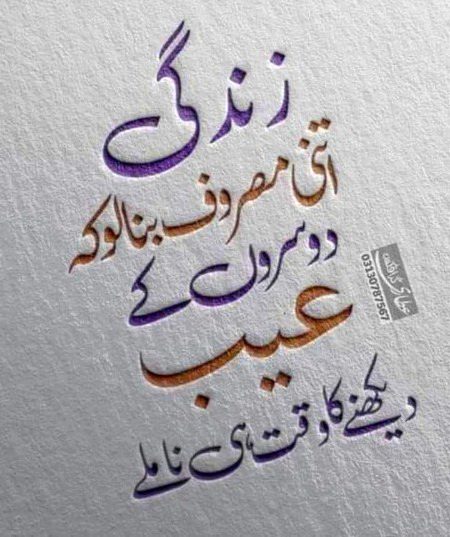 زندگی
اتنی مصروف بنا لو کہ
دوسروں کے
عیب
دیکھنے کا وقت ہی نا ملے
03130787567